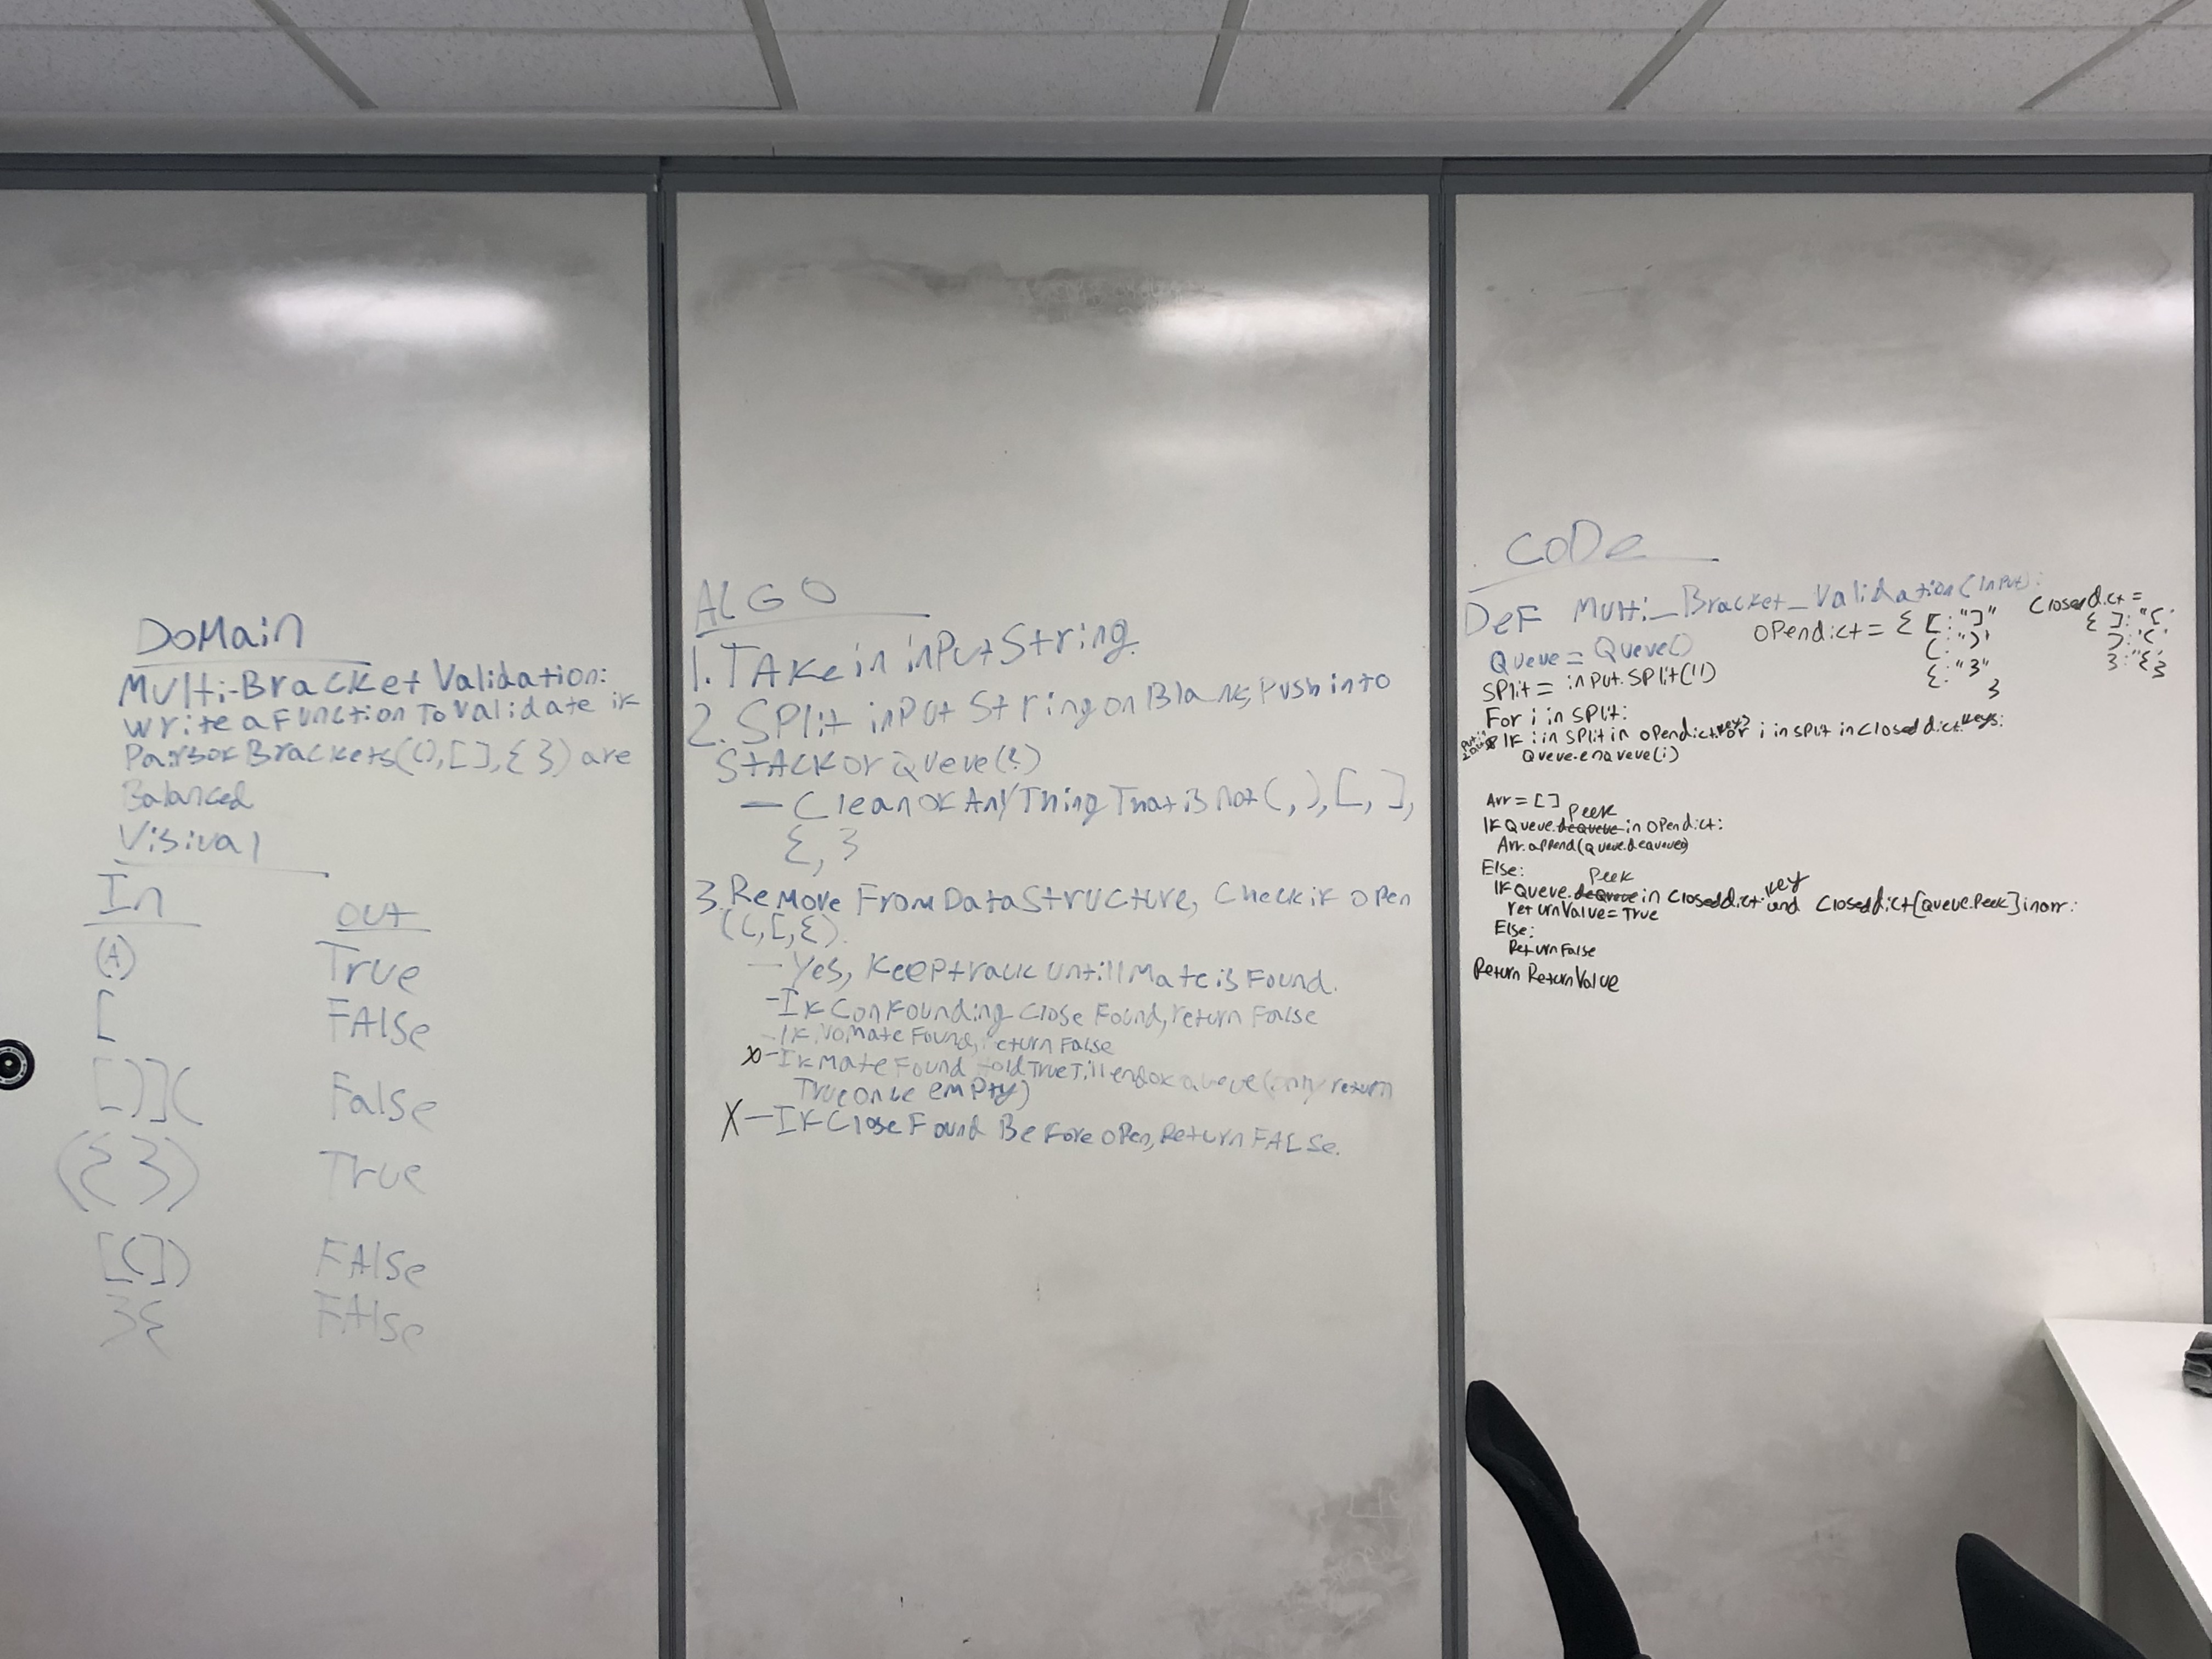 DoMain
Multi-Bracket Validation:
write a Function To Validate if
Pairs of Brackets ((), [], { }) are
Balanced
Visiual
In OUT
(A) True
[ FAlse
[)]( False
({ }) True
[(]) FAlse
}{ FAlse
ALGO
1. TAke in inPut String.
2. SPlit inPut String on Blank, Push into
StAck or Queue(?)
- Clean of AnyThing That is not (, ), [, ],
{, }
3. Remove From Data Structure, Check if open
((, [, {).
- Yes, Keep track untill Mate is Found.
- If Confounding Close Found, return False
- If No Mate Found, return False
x - If Mate Found hold True Till end of queue (only return
True once empty)
X - If Close Found Before open, Return FALSe.
CoDe
DeF Multi_Bracket_Validation(inPut):
Queue = Queue()
OPendict = { [: "]"
(: ")"
{: "}"
}
Closedict =
{ ]: "[",
): "(",
}: "{" }
SPlit = inPut.SPlit('')
For i in SPlit:
put in
If i in SPlit in OPendict.keys or i in SPlit in Closeddict.keys:
Queue.enqueue(i)
Arr = []
If Queue.dequeue Peek in OPendict:
Arr.append(Queue.dequeue)
Else:
If Queue.dequeue Peek in Closeddict.key and Closeddict[Queue.Peek] in arr:
returnValue = True
Else:
Return False
Return ReturnValue